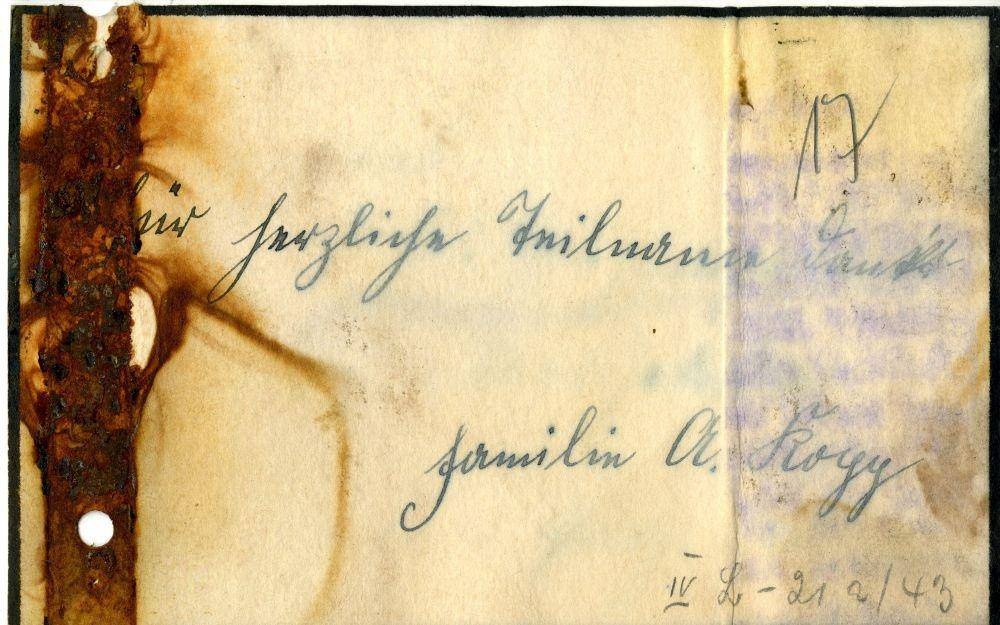 17
Für herzliche Teilname dankt
Familie A. Kopp
IV L - 21 a/43